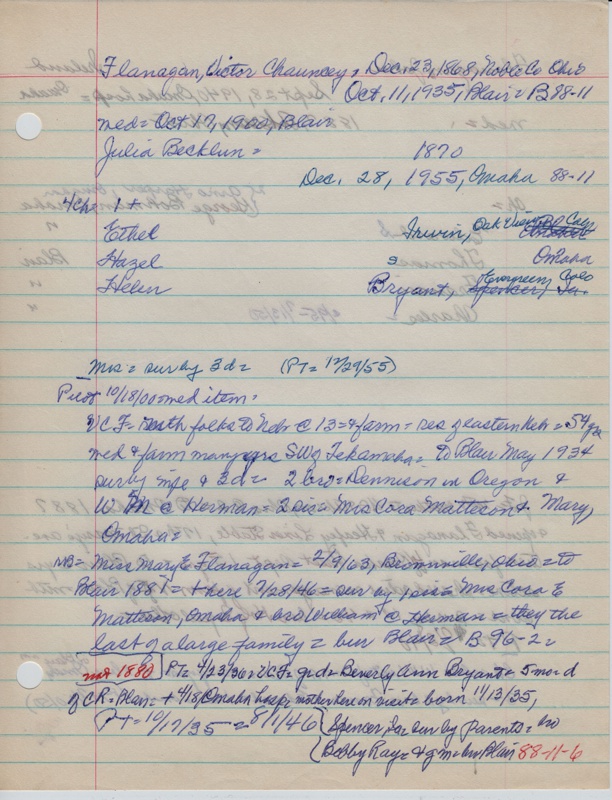 Flanagan, Victor Chauncey, Dec. 23, 1868, Noble Co Ohio
Oct. 11, 1935, Blair = B 88-11
med = Oct 17, 1900, Blair
Julia Becklun = 1870
Dec. 28, 1955, Omaha 88-11
4 Che 1 +
Ethel Irwin, Oak View, Calif
Hazel s Omaha
Helen Bryant, Evergreen, Colo
Mrs = surv by 3 d = (PT = 12/29/55)
Pilot 10/18/00 = med item =
VCF = with folks to Nebr @ 13 = & farm = res of eastern Nebr = 54 yrs
med & farm many yrs SW of Tekamah = to Blair May 1934
surv by wife & 3 d = 2 bro = Dennison in Oregon &
W M @ Herman = 2 sis = Mrs Cora Matteson & Mary,
Omaha =
NB = Miss Mary E Flanagan = 2/9/63, Ohio = to
Blair 1881 = + here 7/28/46 = sur by 1 sis = Mrs Cora E
Matteson Omaha & bro William @ Herman = they the
last of a large family = bur Blair = B 96-2 =
not 1880 PT = 4/23/36 = VCF = gr d = Beverly Ann Bryant = 5 mo = d
of CR = Blair = + 4/18 Omaha hosp = mother here on visit = born 11/13/35,
PT = 10/17/35 = 8/1/46 Spencer, Ia = sur by parents = bro
Bobby Ray = & g m = bur Blair 88-11-6